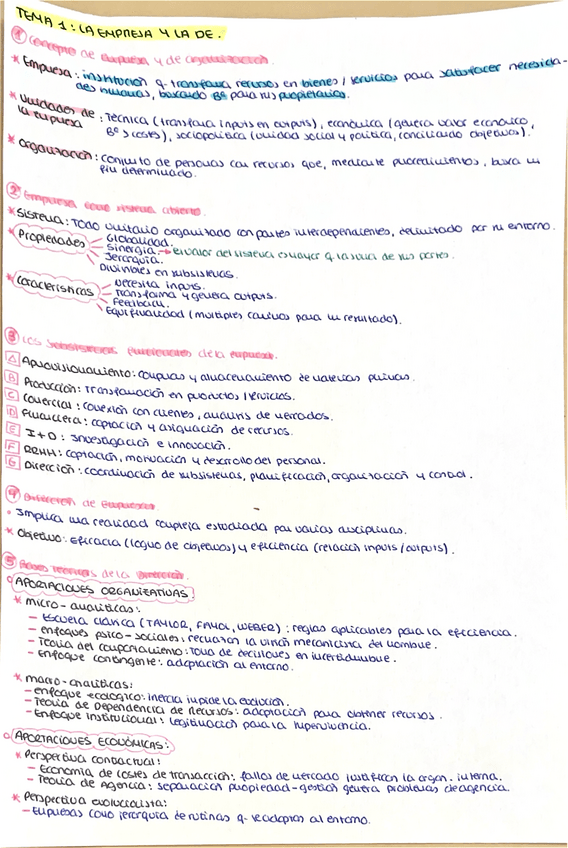 TEMA 1: LA EMPRESA Y LA DE.
① Concepto de empresa y de organización.
* Empresa: institución q transforma recursos en bienes / servicios para satisfacer necesida-
des humanas, buscando Bº para sus propietarios.
* Unidades de : Técnica (transforma inputs en outputs), económica (genera valor económico,
la empresa Bº > costes), sociopolítica (unidad social y política, conciliando objetivos).
* Organización: conjunto de personas con recursos que, mediante procedimientos, busca un
fin determinado.
② Empresa como sistema abierto.
* Sistema: Todo unitario organizado con partes interdependientes, delimitado por su entorno.
* Propiedades
Globalidad.
Sinergia. → el valor del sistema es mayor q la suma de sus partes.
Jerarquía.
Divisibles en subsistemas.
* Características
Necesita inputs.
Transforma y genera outputs.
Feedback.
Equifinalidad (múltiples caminos para un resultado).
③ Los subsistemas funcionales de la empresa.
A Aprovisionamiento: compras y almacenamiento de materias primas.
B Producción: Transformación en productos / servicios.
C Comercial: conexión con clientes, análisis de mercados.
D Financiera: captación y asignación de recursos.
E I+D: Investigación e innovación.
F RRHH: captación, motivación y desarrollo del personal.
G Dirección: coordinación de subsistemas, planificación, organización y control.
④ Dirección de Empresas
° Implica una realidad compleja estudiada por varias disciplinas.
* Objetivo: Eficacia (logro de objetivos) y eficiencia (relación inputs / outputs).
⑤ Bases teóricas de la Dirección.
° APORTACIONES ORGANIZATIVAS:
* Micro-analíticas:
- Escuela clásica (TAYLOR, FAYOL, WEBER): reglas aplicables para la eficiencia.
- Enfoques psico-sociales: rechazan la visión mecanicista del hombre.
- Teoría del comportamiento: Toma de decisiones en incertidumbre.
- Enfoque contingente: adaptación al entorno.
* Macro-analíticas:
- Enfoque ecológico: inercia impide la evolución.
- Teoría de Dependencia de Recursos: adaptación para obtener recursos.
- Enfoque institucional: Legitimación para la supervivencia.
° APORTACIONES ECONÓMICAS:
* Perspectiva contractual:
- Economía de costes de transacción: fallos de mercado justifican la organ. interna.
- Teoría de Agencia: separación propiedad-gestión genera problemas de agencia.
* Perspectiva evolucionista:
- Empresas como jerarquía de rutinas q se adaptan al entorno.